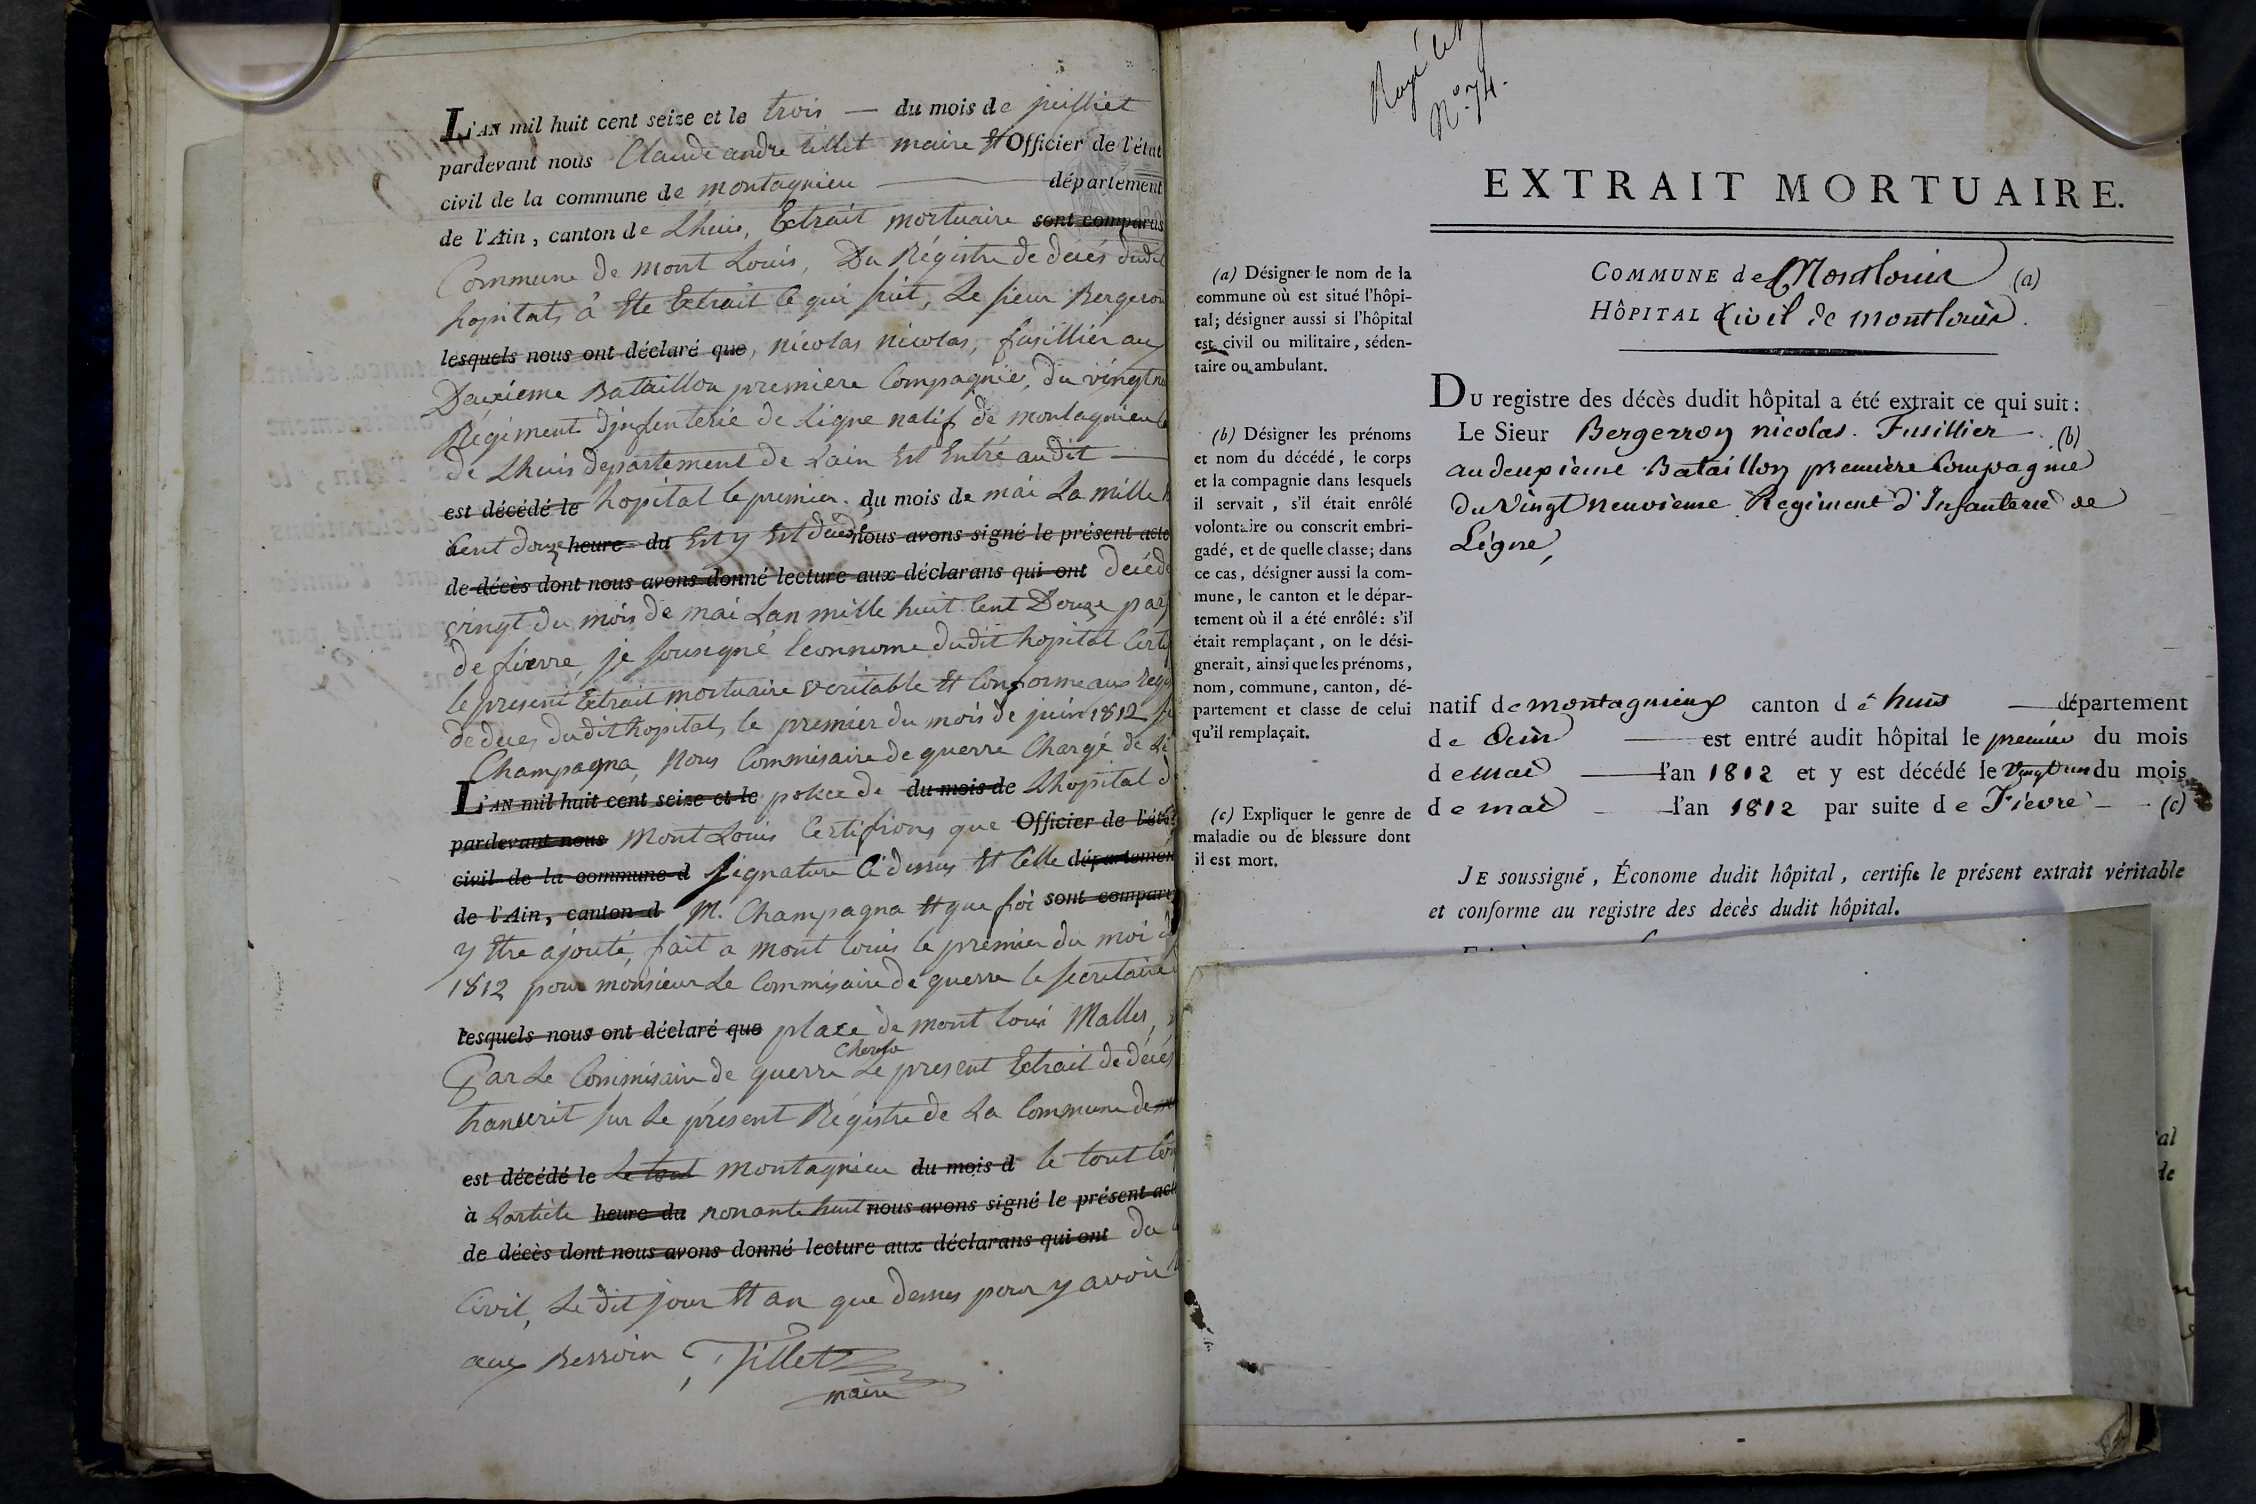 L'AN mil huit cent seize et le trois — du mois de juilliet
pardevant nous Claude andre tillet maire Et Officier de l'état
civil de la commune de montagnieu département
de l'Ain, canton de Lhuis, Extrait mortuaire sont comparus
Commune de mont Louis, Du Régistre de décés dudit
hopitat, à Ete Extrait Ce qui suit, Le sieur Bergeron
lesquels nous ont déclaré que, nicolas nicolas, fusillier au
Deuxieme Bataillon premiere Compagnie, du vingt
Régiment d'jnfenterie de Ligne natif de montagnieu
de Lhuis departement de Lain Est Entré audit —
est décédé le hopital le premier du mois de mai La mille
Cent douze heure du Est y Est décédé nous avons signé le présent acte
de décès dont nous avons donné lecture aux déclarans qui ont décédé
vingt du mois de mai Lan mille huit Cent Douze par
de fievre, je sousigné Econnome dudit hopital
le present Extrait mortuaire veritable Et Conforme aux
de deces dudit hopital, le premier du mois de juin 1812
Champagna, Nous Commisaire de guerre Chargé de
L'AN mil huit cent seize et le police de du mois de Lhopital
pardevant nous Mont Louis Certifions que Officier de l'état
civil de la commune d signature Ci dessus Et Celle département
de l'Ain, canton d M. Champagna Et que foi sont comparus
y Etre ajouté, fait a mont louis le premier du moi
1812 pour monsieur Le Commisaire de guerre le secretaire
lesquels nous ont déclaré que place de mont loui Malles,
Par Le Commisaire de guerre Le present Extrait de décés
transcrit sur Le présent Régistre de La Commune de
est décédé le Le tout montagnieu du mois d le tout
à Larticle heure du nonante huit nous avons signé le présent acte
de décès dont nous avons donné lecture aux déclarans qui ont du
Civil, Le dit jour Et an que dessus pour y avoir
aux Bessoin Tillet
maire
No 74.
EXTRAIT MORTUAIRE.
COMMUNE de Montlouis (a)
HÔPITAL Civil de montlouis.
(a) Désigner le nom de la
commune où est situé l'hôpi-
tal; désigner aussi si l'hôpital
est civil ou militaire, séden-
taire ou ambulant.
DU registre des décès dudit hôpital a été extrait ce qui suit :
Le Sieur Bergerron nicolas. Fusillier (b)
au deuxième Bataillon première Compagnie
du Vingt neuvième Regiment d'Infanterie de
Ligne,
(b) Désigner les prénoms
et nom du décédé, le corps
et la compagnie dans lesquels
il servait, s'il était enrôlé
volontaire ou conscrit embri-
gadé, et de quelle classe; dans
ce cas, désigner aussi la com-
mune, le canton et le dépar-
tement où il a été enrôlé: s'il
était remplaçant, on le dési-
gnerait, ainsi que les prénoms,
nom, commune, canton, dé-
partement et classe de celui
qu'il remplaçait.
natif de montagnieux canton d é huis — département
de Oein — est entré audit hôpital le premier du mois
de mai — l'an 1812 et y est décédé le vingt un du mois
de mai — l'an 1812 par suite de Fievre — (c)
(c) Expliquer le genre de
maladie ou de blessure dont
il est mort.
JE soussigné, Économe dudit hôpital, certifie le présent extrait véritable
et conforme au registre des décès dudit hôpital.